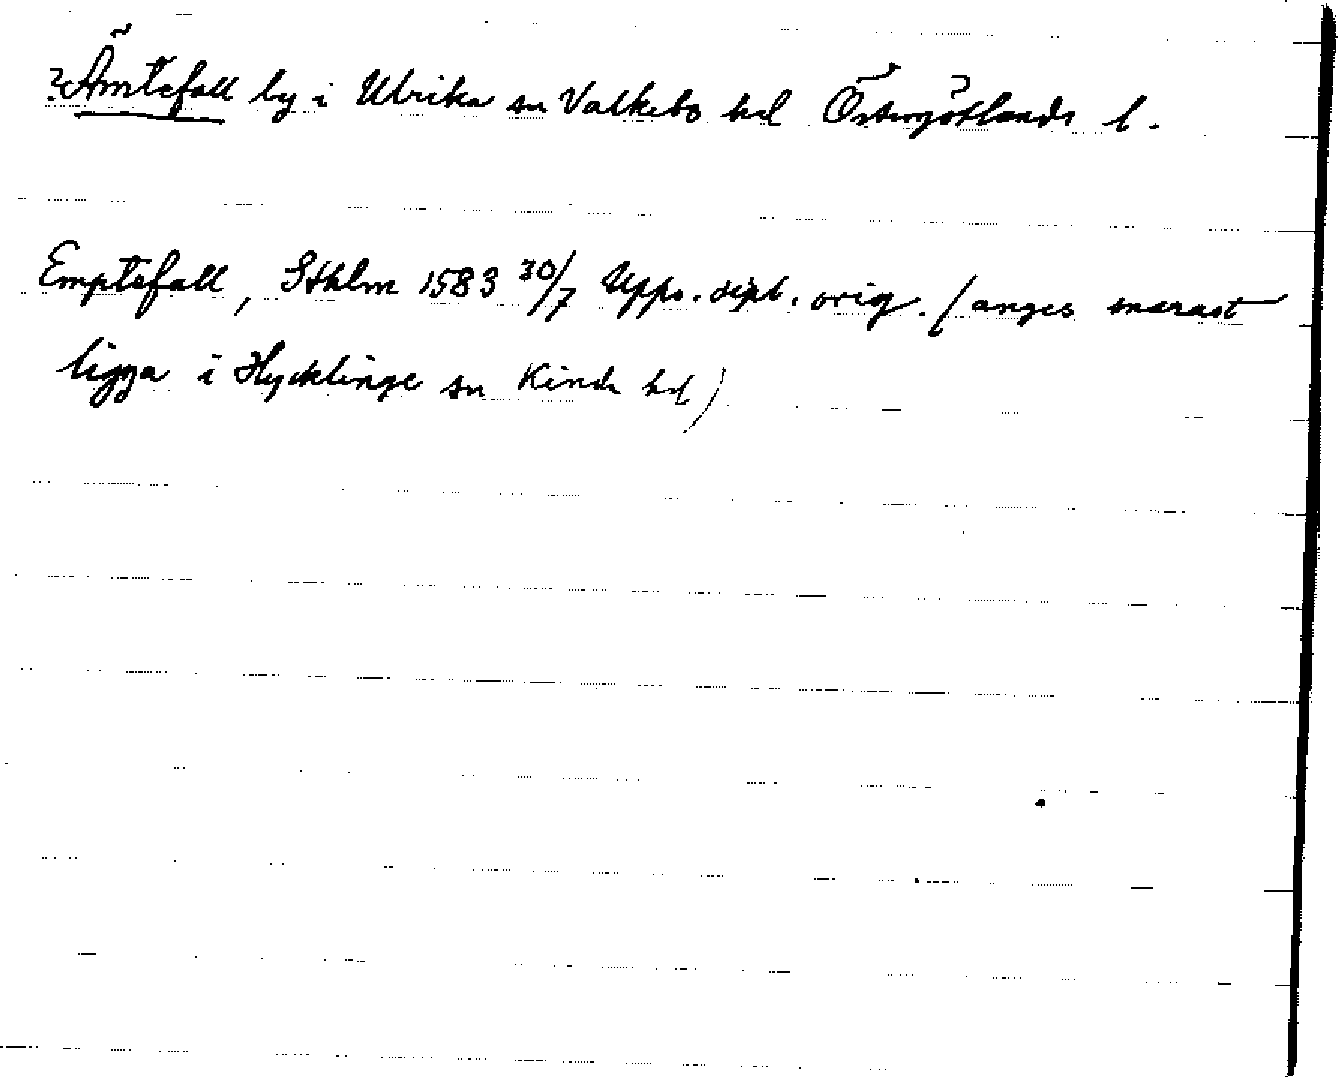 ? Ämtefall by i Ulrika sn Valkebo hd Östergötlands l.
Emptefall, Sthlm 1583 30/7 Upps. dipl. orig. (anges snarast
ligga i Hycklinge sn Kinda hd)